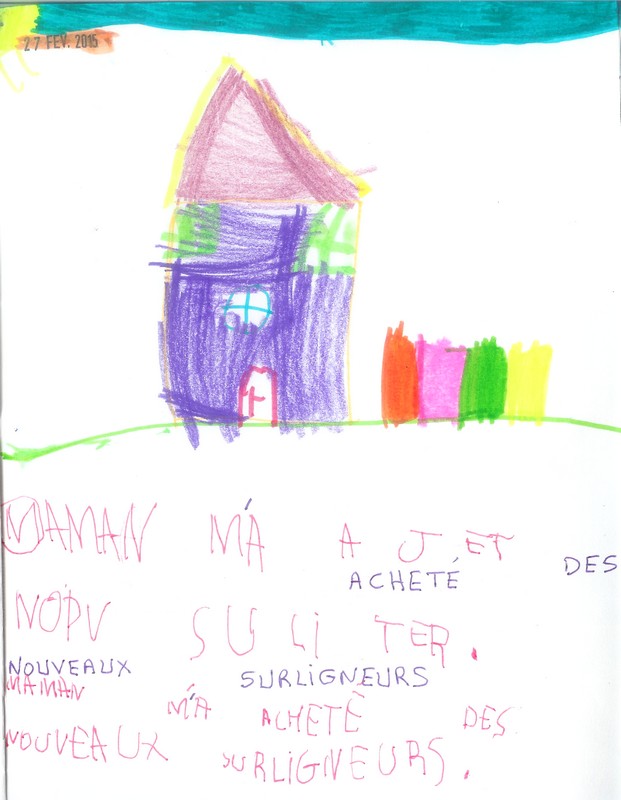 27 FEV. 2015
MAMAN M'A A J ET DES
ACHETÉ
NOPV SU LI TER.
NOUVEAUX SURLIGNEURS
MAMAN M'A ACHETÉ DES
NOUVEAUX SURLIGNEURS.